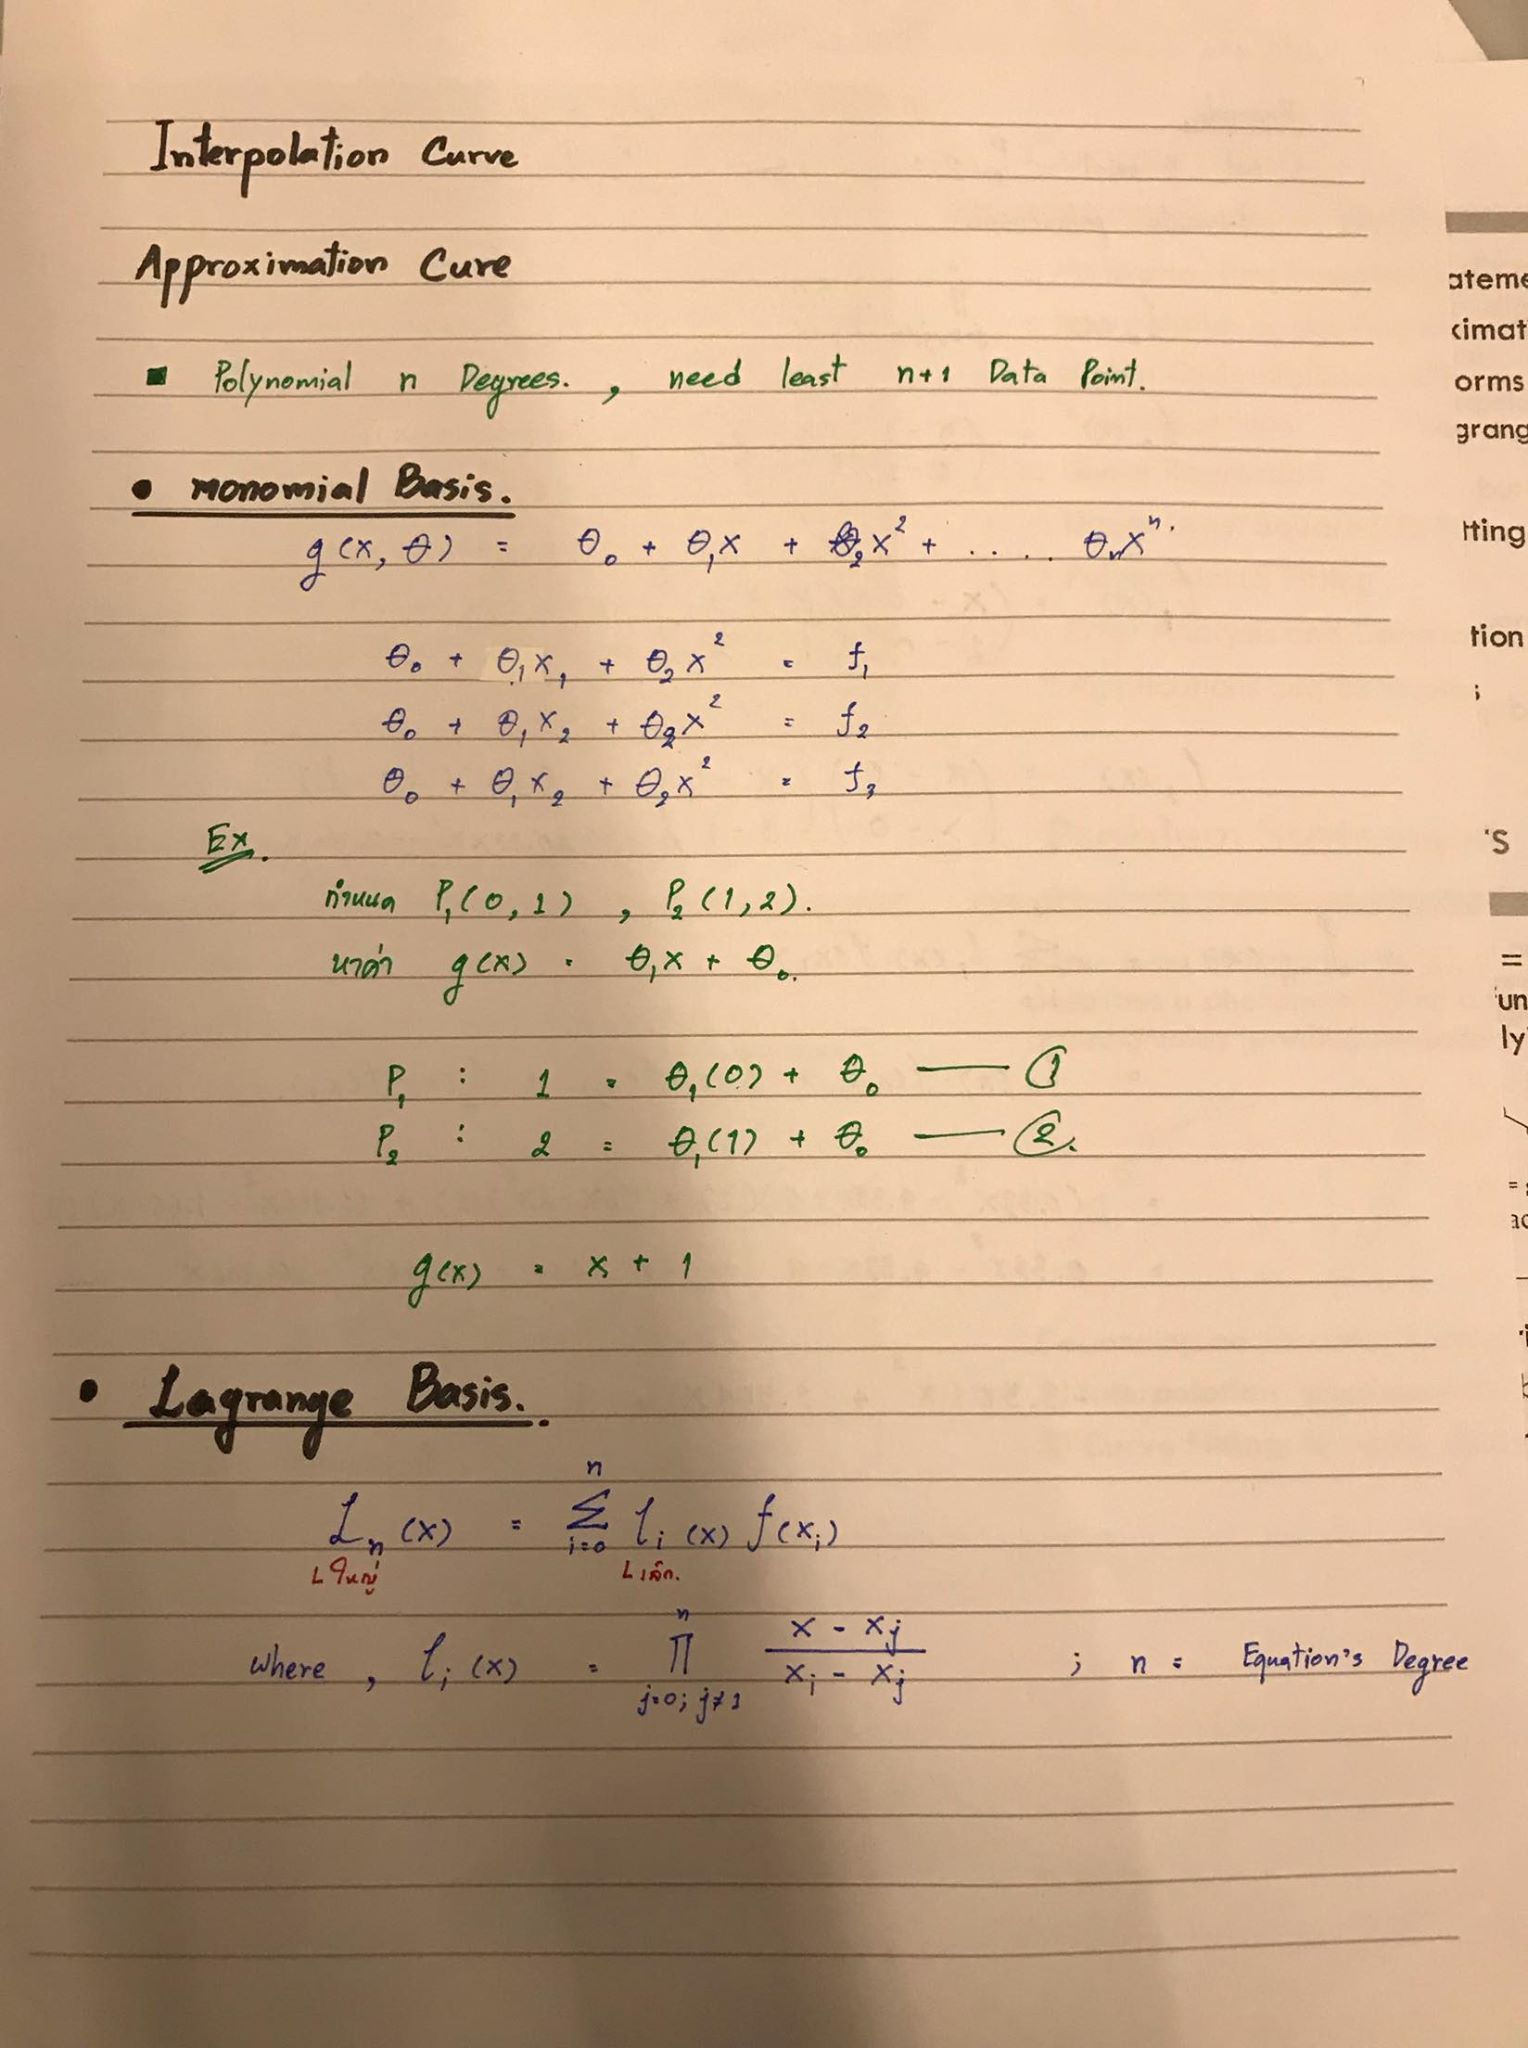 Interpolation Curve
Approximation Cure
▪ Polynomial n Degrees. , need least n+1 Data Point.
• monomial Basis.
g(x, θ) = θ₀ + θ₁x + θ₂x² + ..... θₙxⁿ.
θ₀ + θ₁x₁ + θ₂x² = f₁
θ₀ + θ₁x₂ + θ₂x² = f₂
θ₀ + θ₁x₂ + θ₂x² = f₃
Ex.
กำหนด P₁(0,1) , P₂(1,2).
หาค่า g(x) = θ₁x + θ₀.
P₁ : 1 = θ₁(0) + θ₀ —— ①
P₂ : 2 = θ₁(1) + θ₀ —— ②.
g(x) = x + 1
• Lagrange Basis.
Lₙ(x) = Σ_{i=0}^{n} lᵢ(x) f(xᵢ)
L ใหญ่ L เล็ก.
where , lᵢ(x) = Π_{j=0; j≠1}^{n} (x - xⱼ)/(xᵢ - xⱼ) ; n = Equation's Degree
ateme
ximat
orms
grang
tting
tion
;
'S
=
un
ly
ac